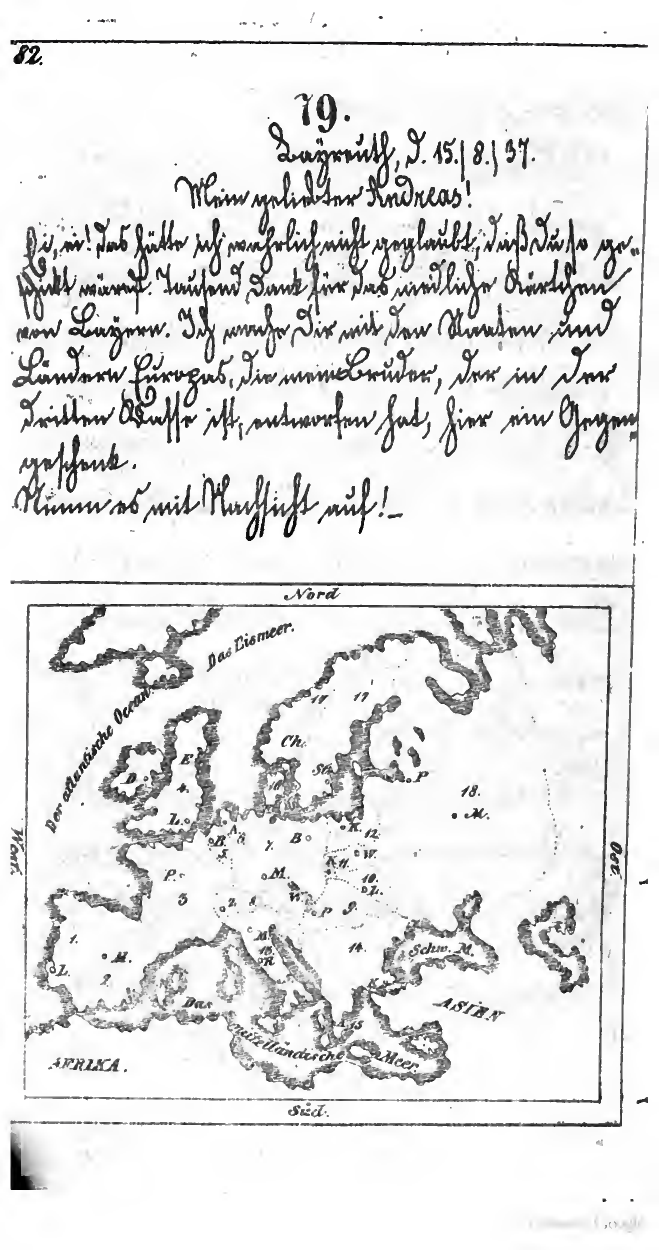 82.
79.
Bayreuth, d. 15.| 8.| 37.
Mein geliebter Andreas!
Ei, ei! das hätte ich wahrlich nicht geglaubt, daß du so ge-
schickt wärest. Tausend Dank für das niedliche Kärtchen
von Bayern. Ich mache Dir mit den Staaten und
Ländern Europas, die mein Bruder, der in der
dritten Klasse ist, entworfen hat, hier ein Gegen-
geschenk.
Nimm es mit Nachsicht auf!_
Nord
Das Eismeer.
Der atlantische Ocean
17 17
Ch.
E
St.
D.
4.
P
18.
M.
L.
A
6
K.
12.
B.
5.
7.
B
W.
K
11.
West.
Ost.
P.
M.
10.
L.
3
W.
Z.
8
P
9.
1.
M.
14.
Schw. M.
M.
13.
L.
R.
2.
K.
Das
ASIEN
A 15
mittelländische Meer.
AFRIKA.
Süd.